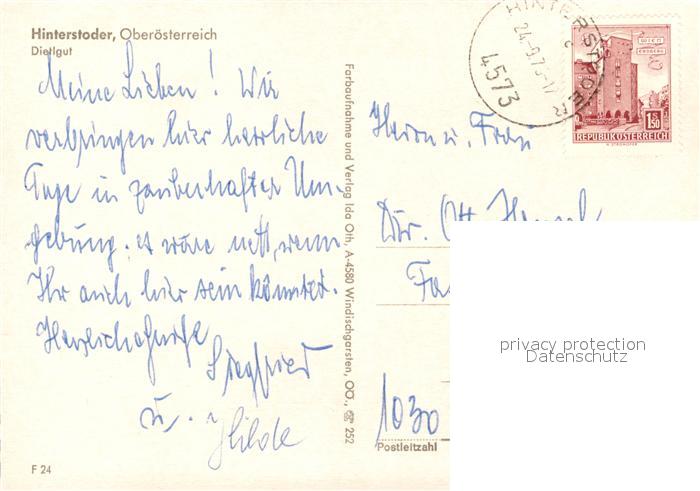 Hinterstoder, Oberösterreich
Dietlgut
Meine Lieben! Wir
verbringen hier herrliche
Tage in zauberhafter Um-
gebung. es wäre nett, wenn
Ihr auch hier sein könntet.
Herzlichst grüßt
Siegfried
u.
Hilde
F 24
Farbaufnahme und Verlag Ida Oth, A-4580 Windischgarsten, OÖ., ☎ 252
HINTERSTODER
24.-9.73-17
4573
WIEN
ERDBERG
1.50
REPUBLIK ÖSTERREICH
Herrn u. Frau
Dir. Ott
1030
Postleitzahl
privacy protection
Datenschutz